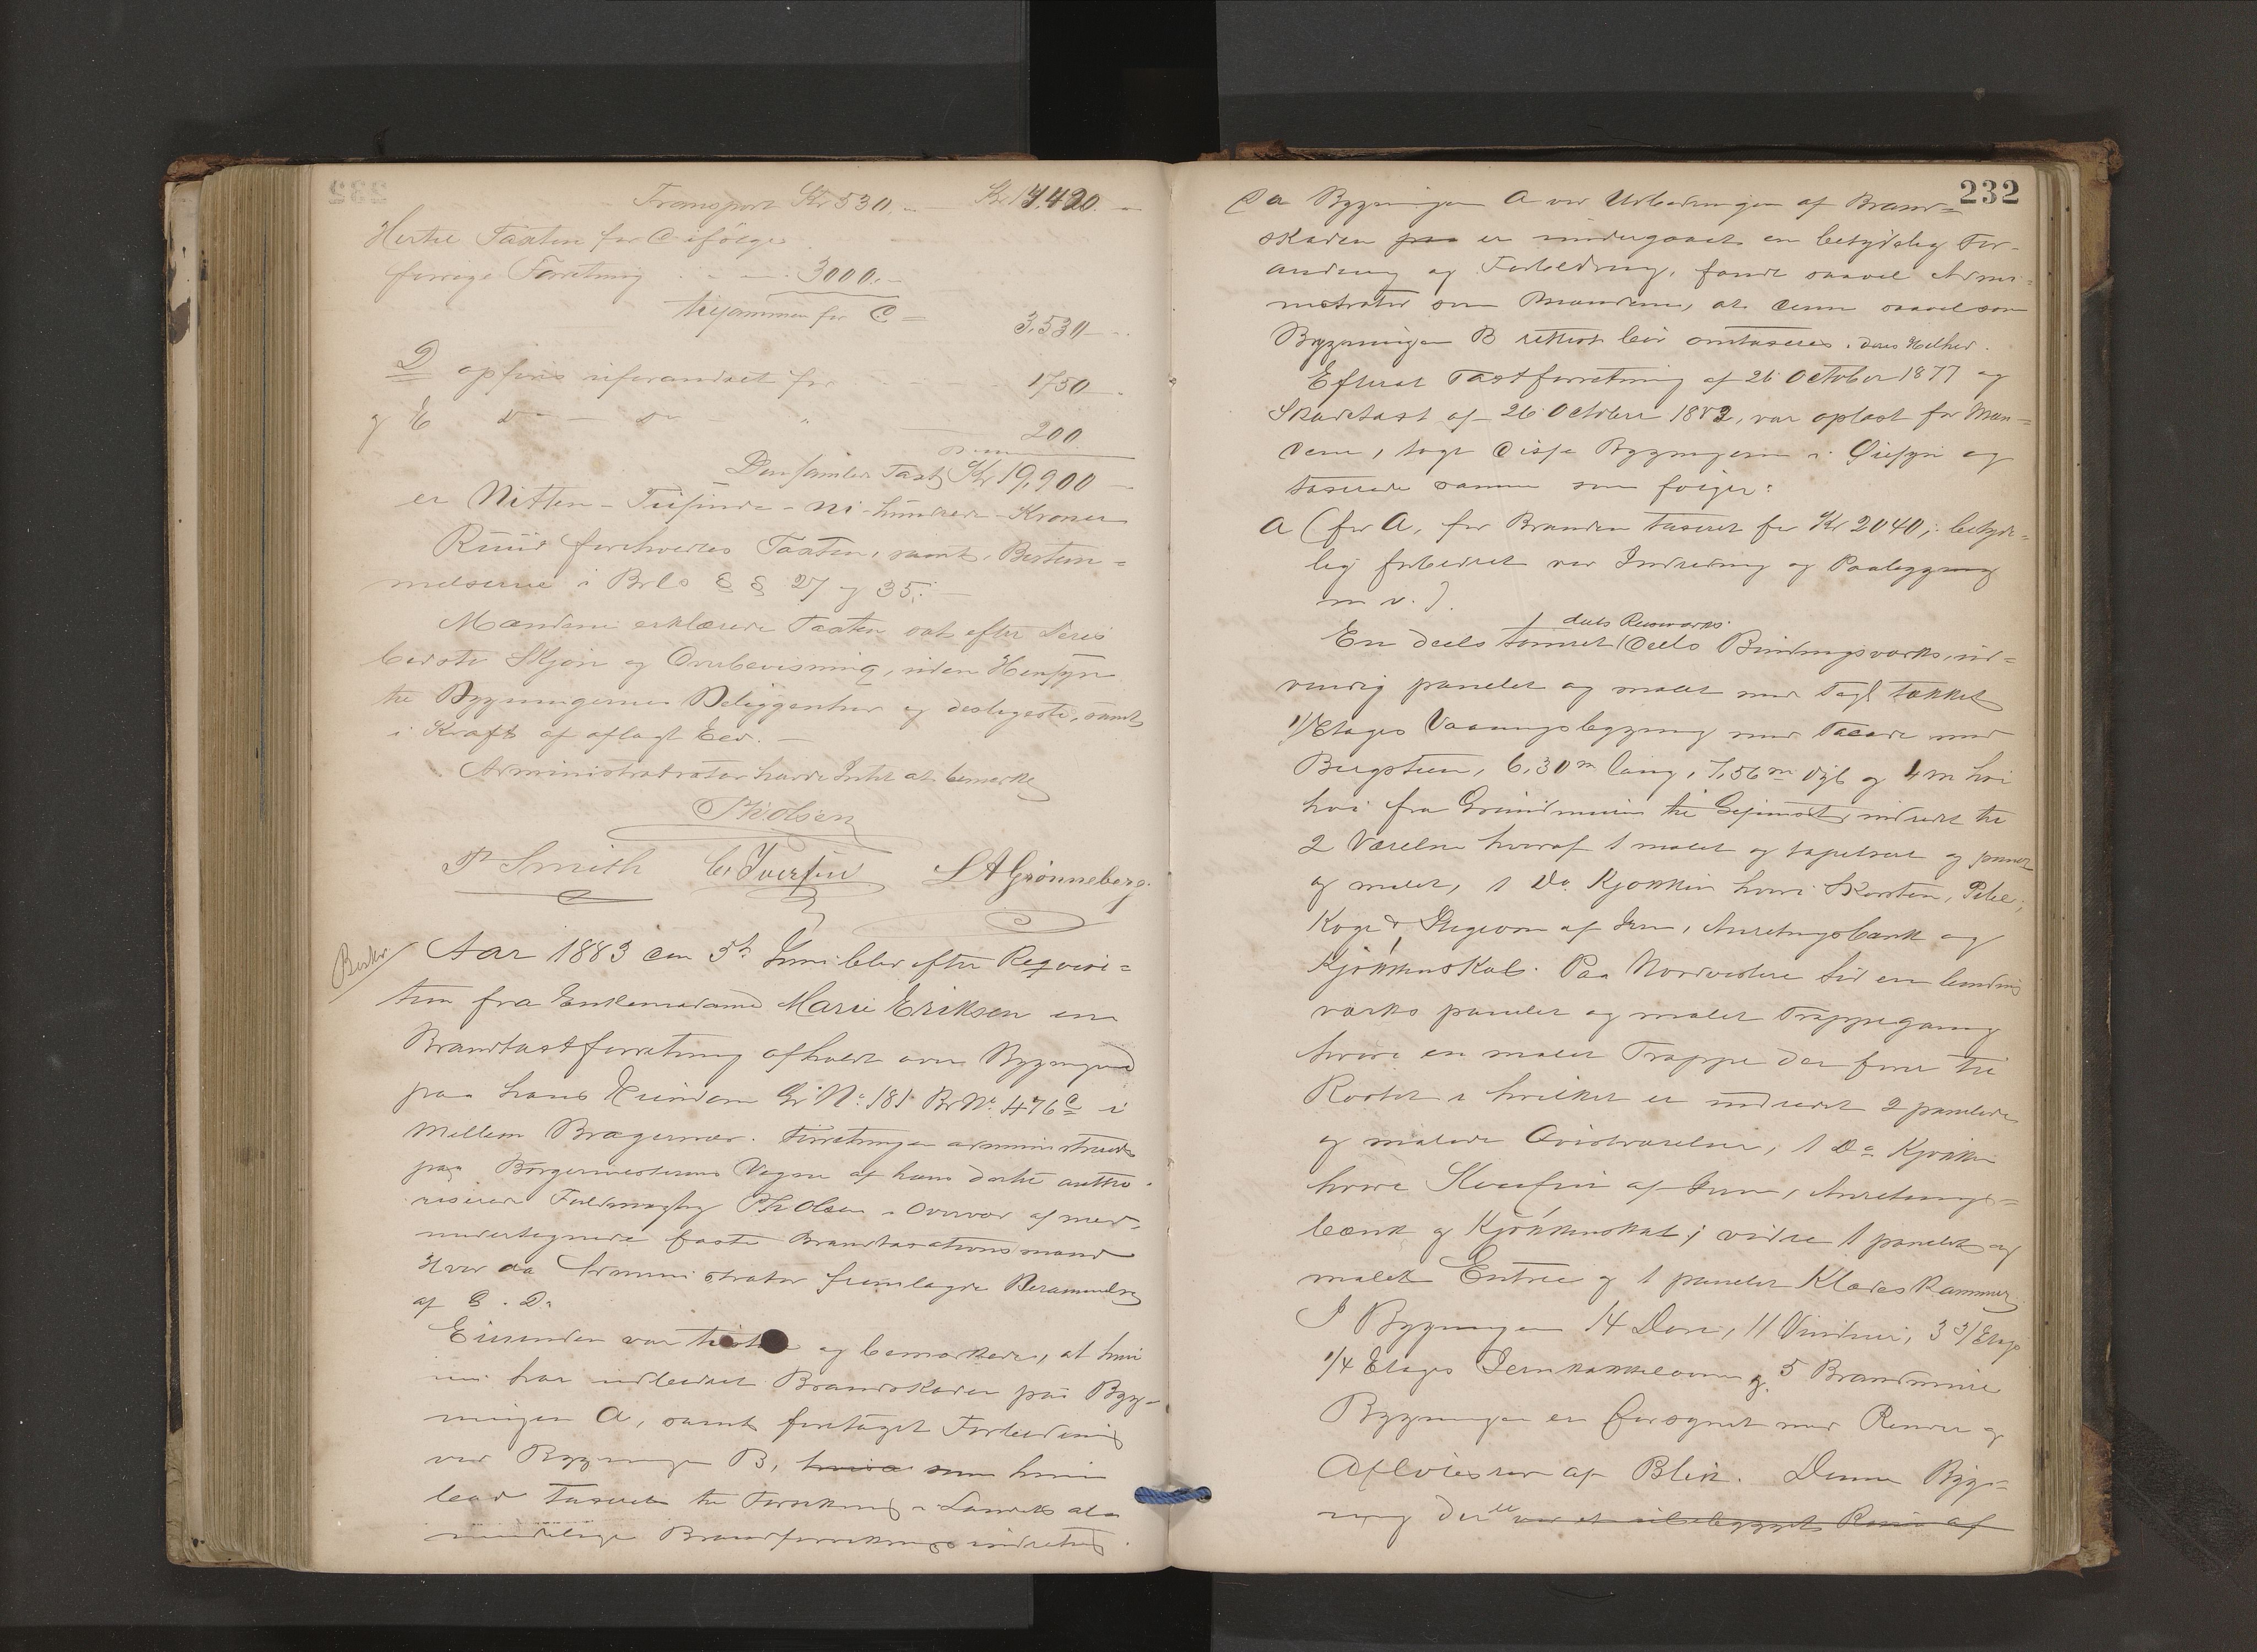 Transport Kr 530.- Kr 14.420.-
Hertil Taxten for C ifølge
forrige Forretning 3000.-
tilsammen for C = 3.530-
D opføres uforandret for 1750.
og E Do Do 200
Den samlede Taxt Kr 19,900-
er Nitten-Tusinde-ni-hundrede Kroner
Ruud forehvertes Taxten, samt Bestem-
melserne i Brl. §§ 27 og 35.-
Mændene erklærede Taxten sat efter deres
bedste Skjøn og Overbevisning, uden Hensyn
til Bygningernes Beliggenhed og desligeste, samt
i Kraft af aflagt Eed.-
Administrator havde Intet at bemærke
Th Olsen
P Smith C. Iversen L A Grønneberg.
Beskr
Aar 1883 den 5te Juni blev efter Reqvisi-
tion fra Enkemadame Marie Eriksen en
Brandtaxtforretning afholdt over Bygningerne
paa hans Eiendom Gr No 181 Br No 476 c i
Mellem Bragernes. Forretningen administreredes
paa Borgermesterens Vegne af hans dertil autho-
riserede Fuldmægtig Th Olsen i Overvær af med-
undertegnede faste Brandtaxationsmænd
Hvor da Administrator fremlagde Berammelse
af G. D.
Eierinden var tilstede og bemærkede, at hun
nu har udbedret Brandskaden paa Byg-
ningen A, samt foretaget Forbedring
ved Bygningen B, som hun
bad taxeret til Forsikring i Landets al-
mindelige Brandforsikringsindretning.
232
Da Bygningen A ved Udbedringen af Brand-
skaden paa er undergaaet en betydelig For-
andring og Forbedring, fandt saavel Admi-
nistrator som Mændene, at denne saavelsom
Bygningen B rettest bør omtaxeres i deres Helhed.
Efterat Taxtforretning af 26 October 1877 og
Skadetaxt af 26 October 1882, var oplæst for Mæn-
dene, toge disse Bygningerne i Øiesyn og
taxerede samme som følger:
A (før A, før Branden taxeret for Kr 2040,- betyde-
lig forbedret ved Indredning og Paabygning
m. v.).
deels Reisværks
En deels tømret deels Bindingsværks, ud-
vendig panelet og malet med Tagl tækket
1 Etages Vaaningsbygning med Facade mod
Bergstien, 6,30 m lang, 7,56 m dyb og 4 m høi
høi fra Grundmuren til Gesimset, indredet til
2 Værelser hvoraf 1 malet og tapetseret og panelet
og malet, 1 Do Kjøkken hvori Skorsten, Pibe,
Koge & Stegeovn af Jern, Anretningsbænk og
Kjøkkenskab. Paa Nordvestre Sid en bindings
værks panelet og malet Trappegang
hvori en malet Trappe der fører til
Røstet i hvilket er indredet 2 panelede
og malede Qvistværelser, 1 Do Kjøkken
hvori Komfur af Jern, Anretnings-
bænk og Kjøkkenskab; videre 1 panelet og
malet Entrée og 1 panelet Klædeskammer
I Bygningen 14 Døre, 11 Vinduer, 3 3/ Etages
1/4 Etages Jernkakkelovne og 5 Brandmure
Bygningen er forsynet med Render og
Afløbsrør af Blik. Denne Byg-
ning der